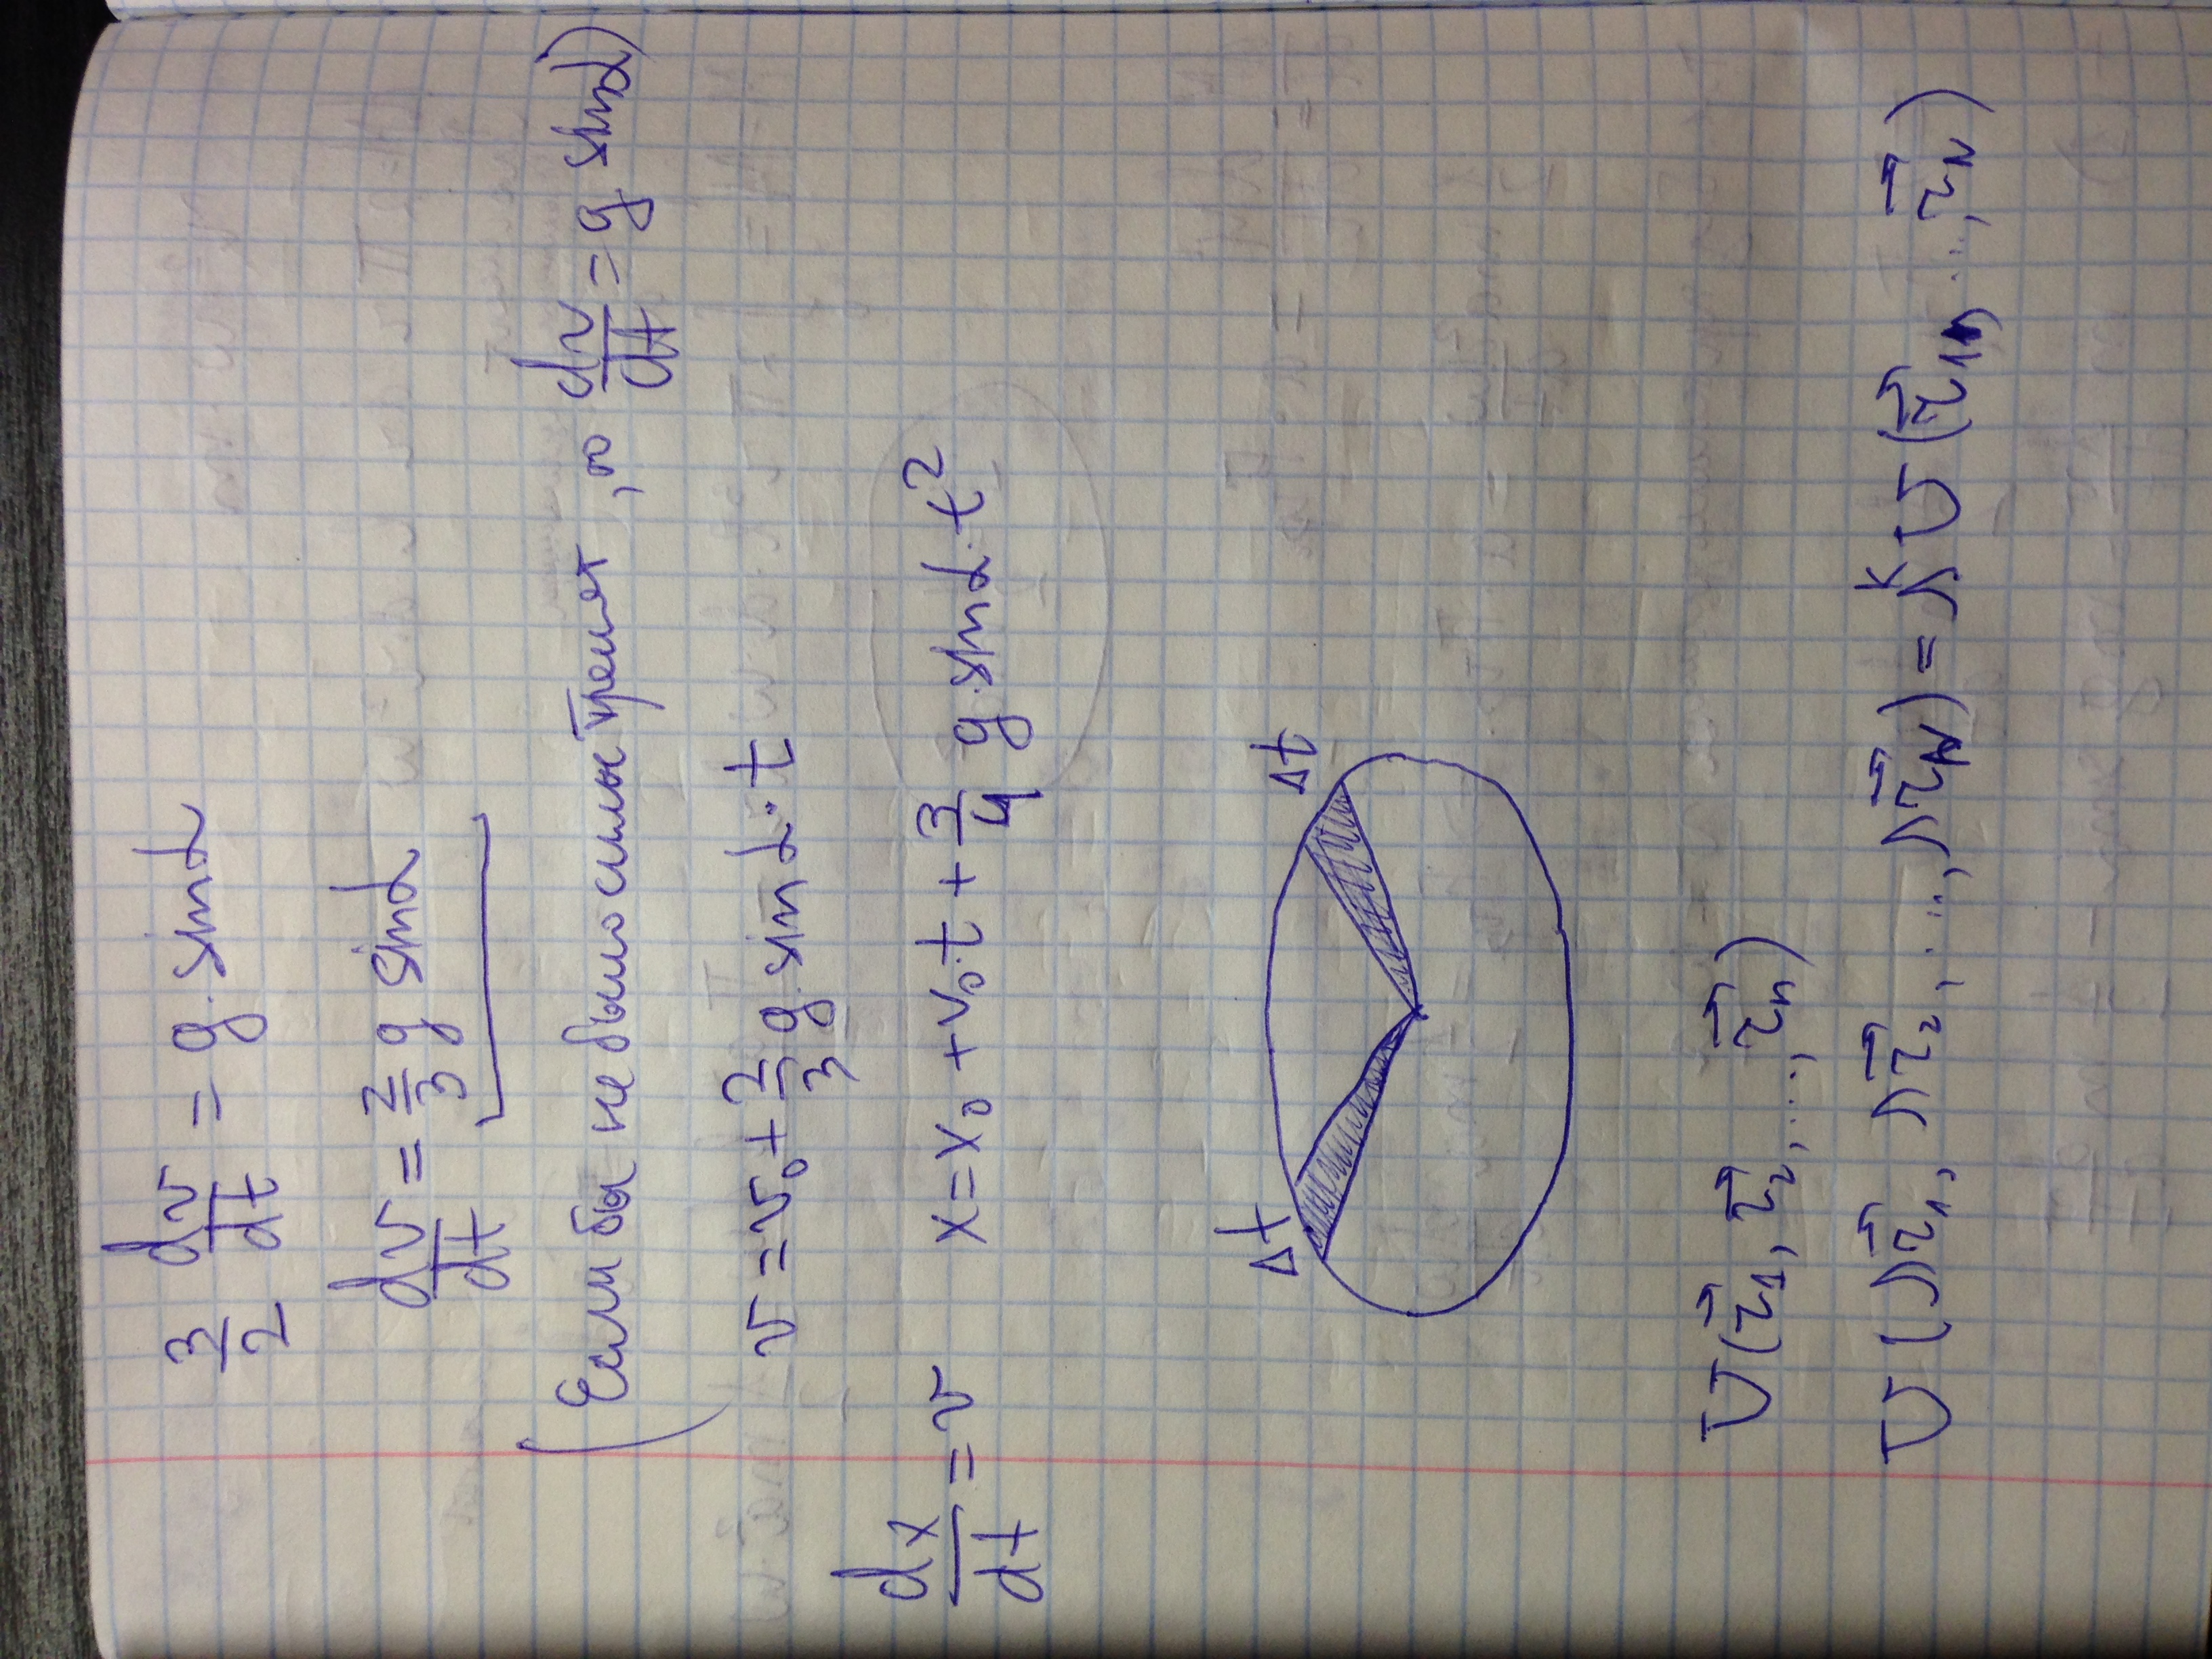 3/2 dv/dt = g · sinα
dv/dt = 2/3 g sinα
(Если бы не было силы трения, то dv/dt = g sinα)
v = v₀ + 2/3 g · sin α · t
dx/dt = v x = x₀ + v₀ · t + 3/4 g · sinα · t²
Δt Δt
U(r⃗₁, r⃗₂, ..., r⃗n)
U(λr⃗₁, λr⃗₂, ..., λr⃗N) = λᴷ U(r⃗₁, ..., r⃗N)